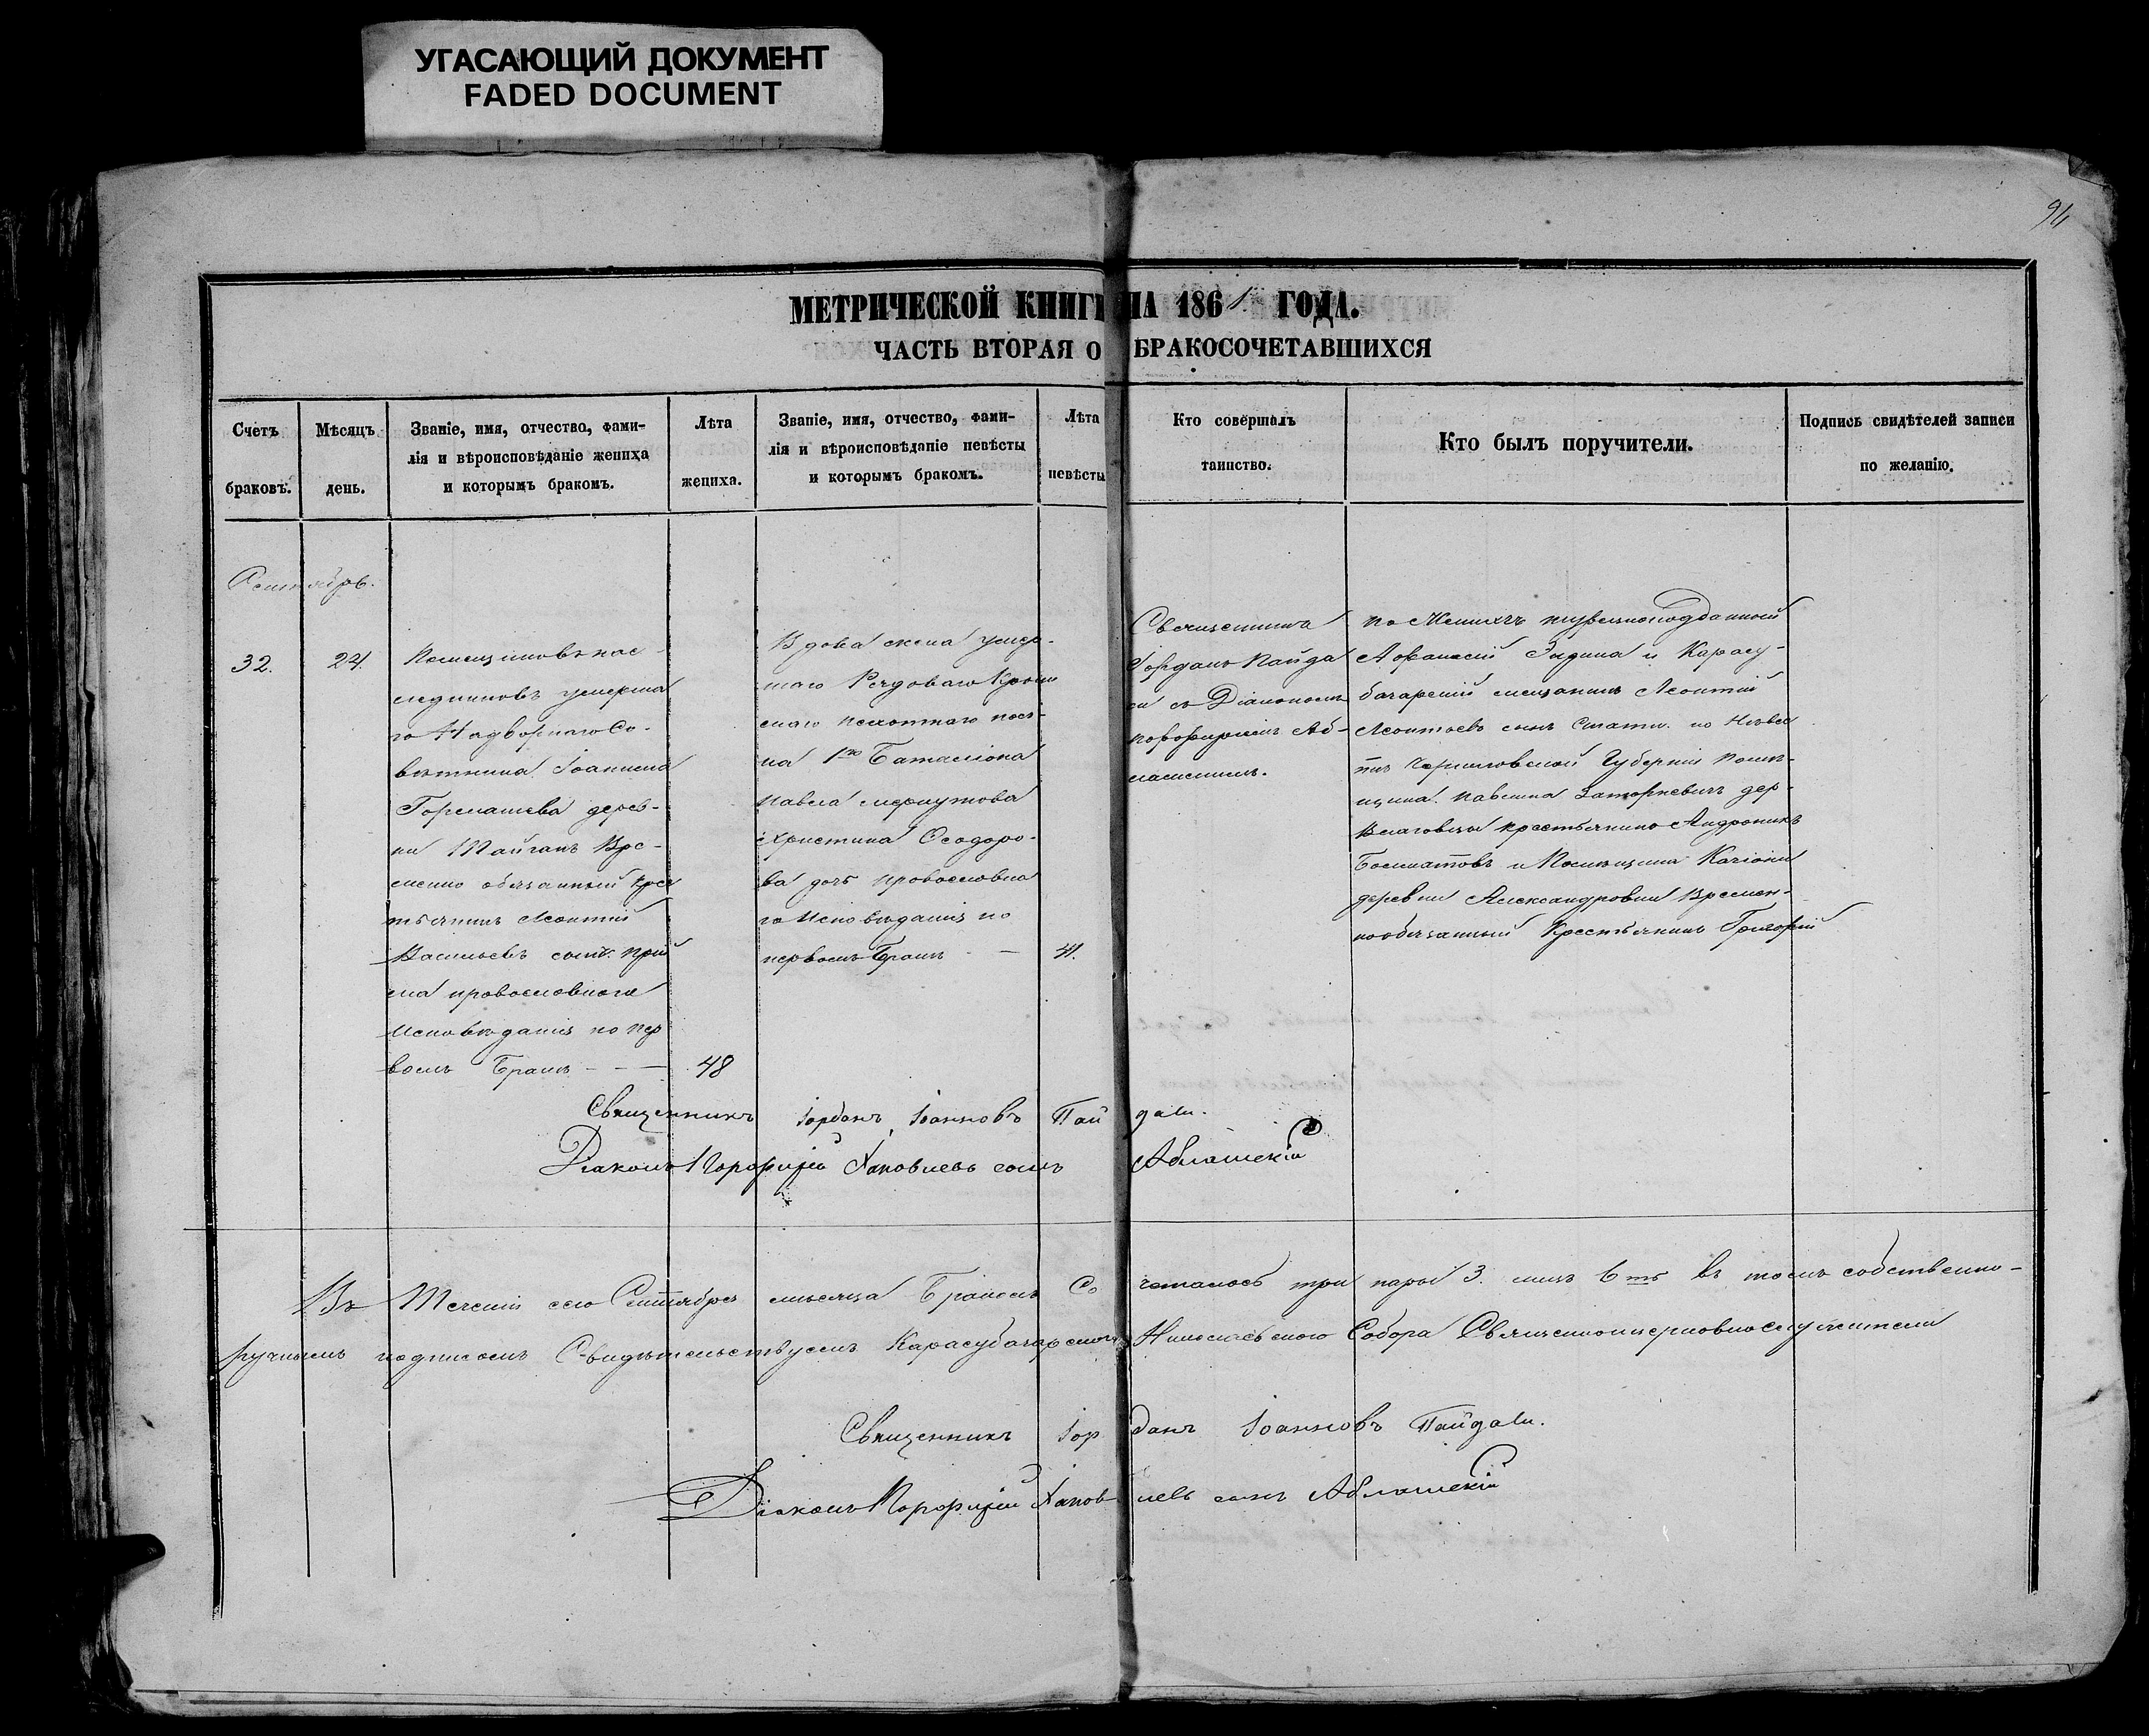 УГАСАЮЩИЙ ДОКУМЕНТ
FADED DOCUMENT
94
МЕТРИЧЕСКОЙ КНИГИ НА 1861 ГОДА.
ЧАСТЬ ВТОРАЯ О БРАКОСОЧЕТАВШИХСЯ
Счетъ браковъ.
Мѣсяцъ день.
Званіе, имя, отчество, фами-
лія и вѣроисповѣданіе жениха
и которымъ бракомъ.
Лѣта жениха.
Званіе, имя, отчество, фами-
лія и вѣроисповѣданіе невѣсты
и которымъ бракомъ.
Лѣта невѣсты
Кто совершалъ
таинство.
Кто былъ поручители.
Подпись свидѣтелей записи
по желанію.
Сентябрь.
32.
24.
Помещиковъ нас-
ледниковъ умерша
го Надворнаго Со-
вѣтника Іоаникія
дерев-
ни Тайганъ Вре-
менно обязанный Крес
тьянинъ Леонтій
Васильевъ сынъ
православнаго
Исповѣданія по пер
вомъ Бракѣ - - —
48
Вдова жена умер-
шаго Рядоваго
скаго пехотнаго пол-
ка 1го Баталіона
Павла
Христина Ѳеодоро-
ва дочь православна
го Исповѣданія по
первомъ Бракѣ —
41.
Священника
Іорданъ Пайда
ли съ Діакономъ
Порфиріемъ Аб-
лашскимъ.
по Женихѣ турецкоподданный
Афанасій и Карасу-
базарскій мещанинъ Леонтій
Леонтьевъ сынъ по Невѣс
тѣ Черниговской Губерніи Поме-
щика дер-
крестьянинъ Андроникъ
и Помещика
деревни Александровки Времен-
нообязанный Крестьянинъ Григорій
Священникъ Іорданъ Іоанновъ Пайдали.
Діаконъ Порфирій Яковлевъ сынъ Аблашскій
Въ Теченіи сего Сентября месяца Бракомъ Сочеталось три пары 3. лицъ 6ть въ томъ собственно-
ручнымъ подписомъ Свидѣтельствуемъ Карасубазарскаго Николаевскаго Собора Священноцерковнослужители
Священникъ Іорданъ Іоанновъ Пайдали.
Діаконъ Порфирій Яковлевъ сынъ Аблашскій